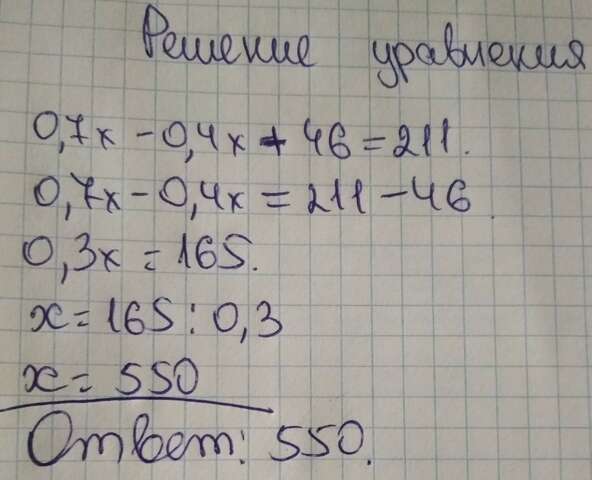 Решение уравнения
0,7x - 0,4x + 46 = 211.
0,7x - 0,4x = 211 - 46.
0,3x = 165.
x = 165 : 0,3
x = 550
Ответ: 550.